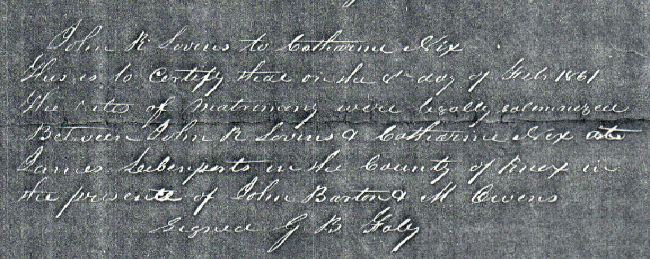 John R Lovins to Catharine Nix
This is to Certify that on the 8th day of Feb. 1861
the rites of Matrimony were legally solemnized
Between John R Lovins & Catharine Nix at
James in the County of Knox in
the presence of John Barton & M Owens
Signed G B Foley